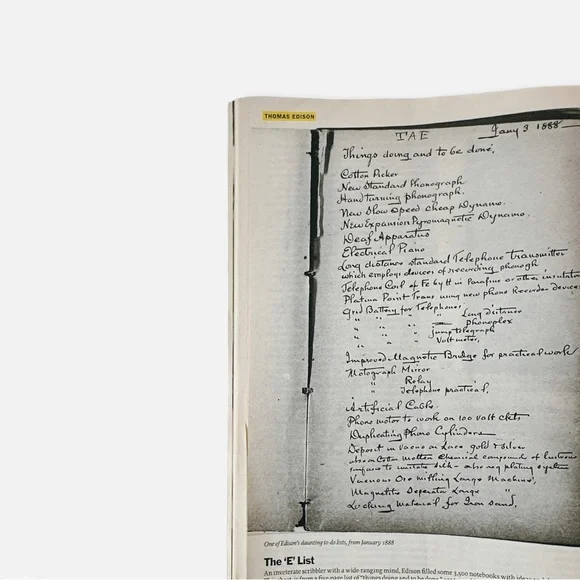 THOMAS EDISON
TAE Jany 3 1888
Things doing and to be done,
Cotton Picker
New Standard Phonograph
Hand turning phonograph.
New Slow Speed cheap Dynamo.
New Expansion Pyromagnetic Dynamo.
Deaf Apparatus
Electrical Piano
Long distance standard Telephone Transmitter
which employs devices of recording phonogh
Telephone Coil of Fe by tt in Parafine or other insulator
Platina Point Trans using new phono Recorder Devices
Grid Battery for Telephones,
" " " " Long distance
" " " " Phonoplex
" " " " Jump telegraph
" " " " Voltmeter,
Improved Magnetic Bridge for practical work
Motograph Mirror
" Relay
" Telephone practical,
Artificial Cable.
Phono motor to work on 100 volt ckts
Duplicating Phono Cylinders
Deposit in vacuo on Lace, gold & silver
also on Cotton molten chemical compound of lustrous
surface to imitate silk - also reg plating system
Vacuous Ore milling Large Machine,
Magnetic Separator Large "
Locking material for Iron sand,
One of Edison's daunting to-do lists, from January 1888
The 'E' List
An inveterate scribbler with a wide-ranging mind, Edison filled some 3,500 notebooks with